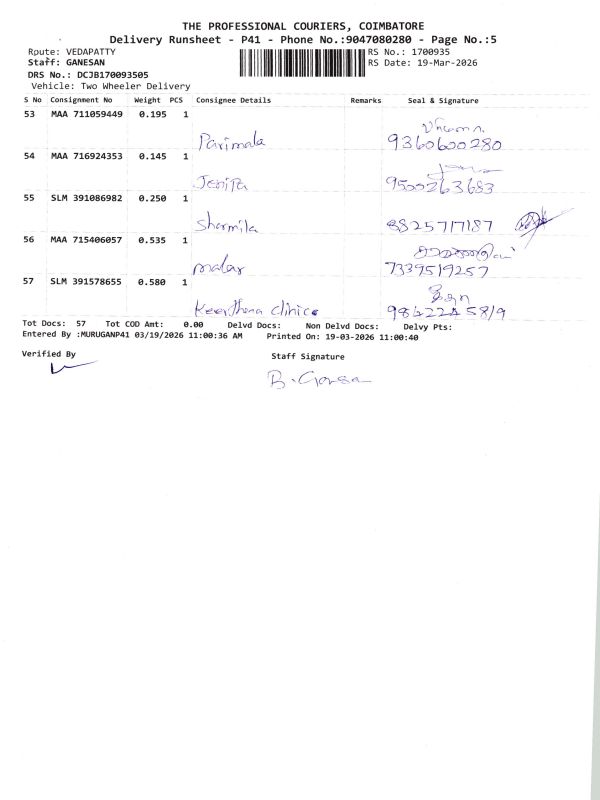 THE PROFESSIONAL COURIERS, COIMBATORE
Delivery Runsheet - P41 - Phone No.:9047080280 - Page No.:5
Route: VEDAPATTY
RS No.: 1700935
Staff: GANESAN
RS Date: 19-Mar-2026
DRS No.: DCJB170093505
Vehicle: Two Wheeler Delivery
S No Consignment No Weight PCS Consignee Details Remarks Seal & Signature
53 MAA 711059449 0.195 1
Parimala 9360600280
54 MAA 716924353 0.145 1
Jenifa 9500263683
55 SLM 391086982 0.250 1
Sharmila 8825717187
56 MAA 715406057 0.535 1
malar 7339519257
57 SLM 391578655 0.580 1
Keerthana clinic
Tot Docs: 57 Tot COD Amt: 0.00 Delvd Docs: Non Delvd Docs: Delvy Pts:
Entered By :MURUGANP41 03/19/2026 11:00:36 AM Printed On: 19-03-2026 11:00:40
Verified By Staff Signature